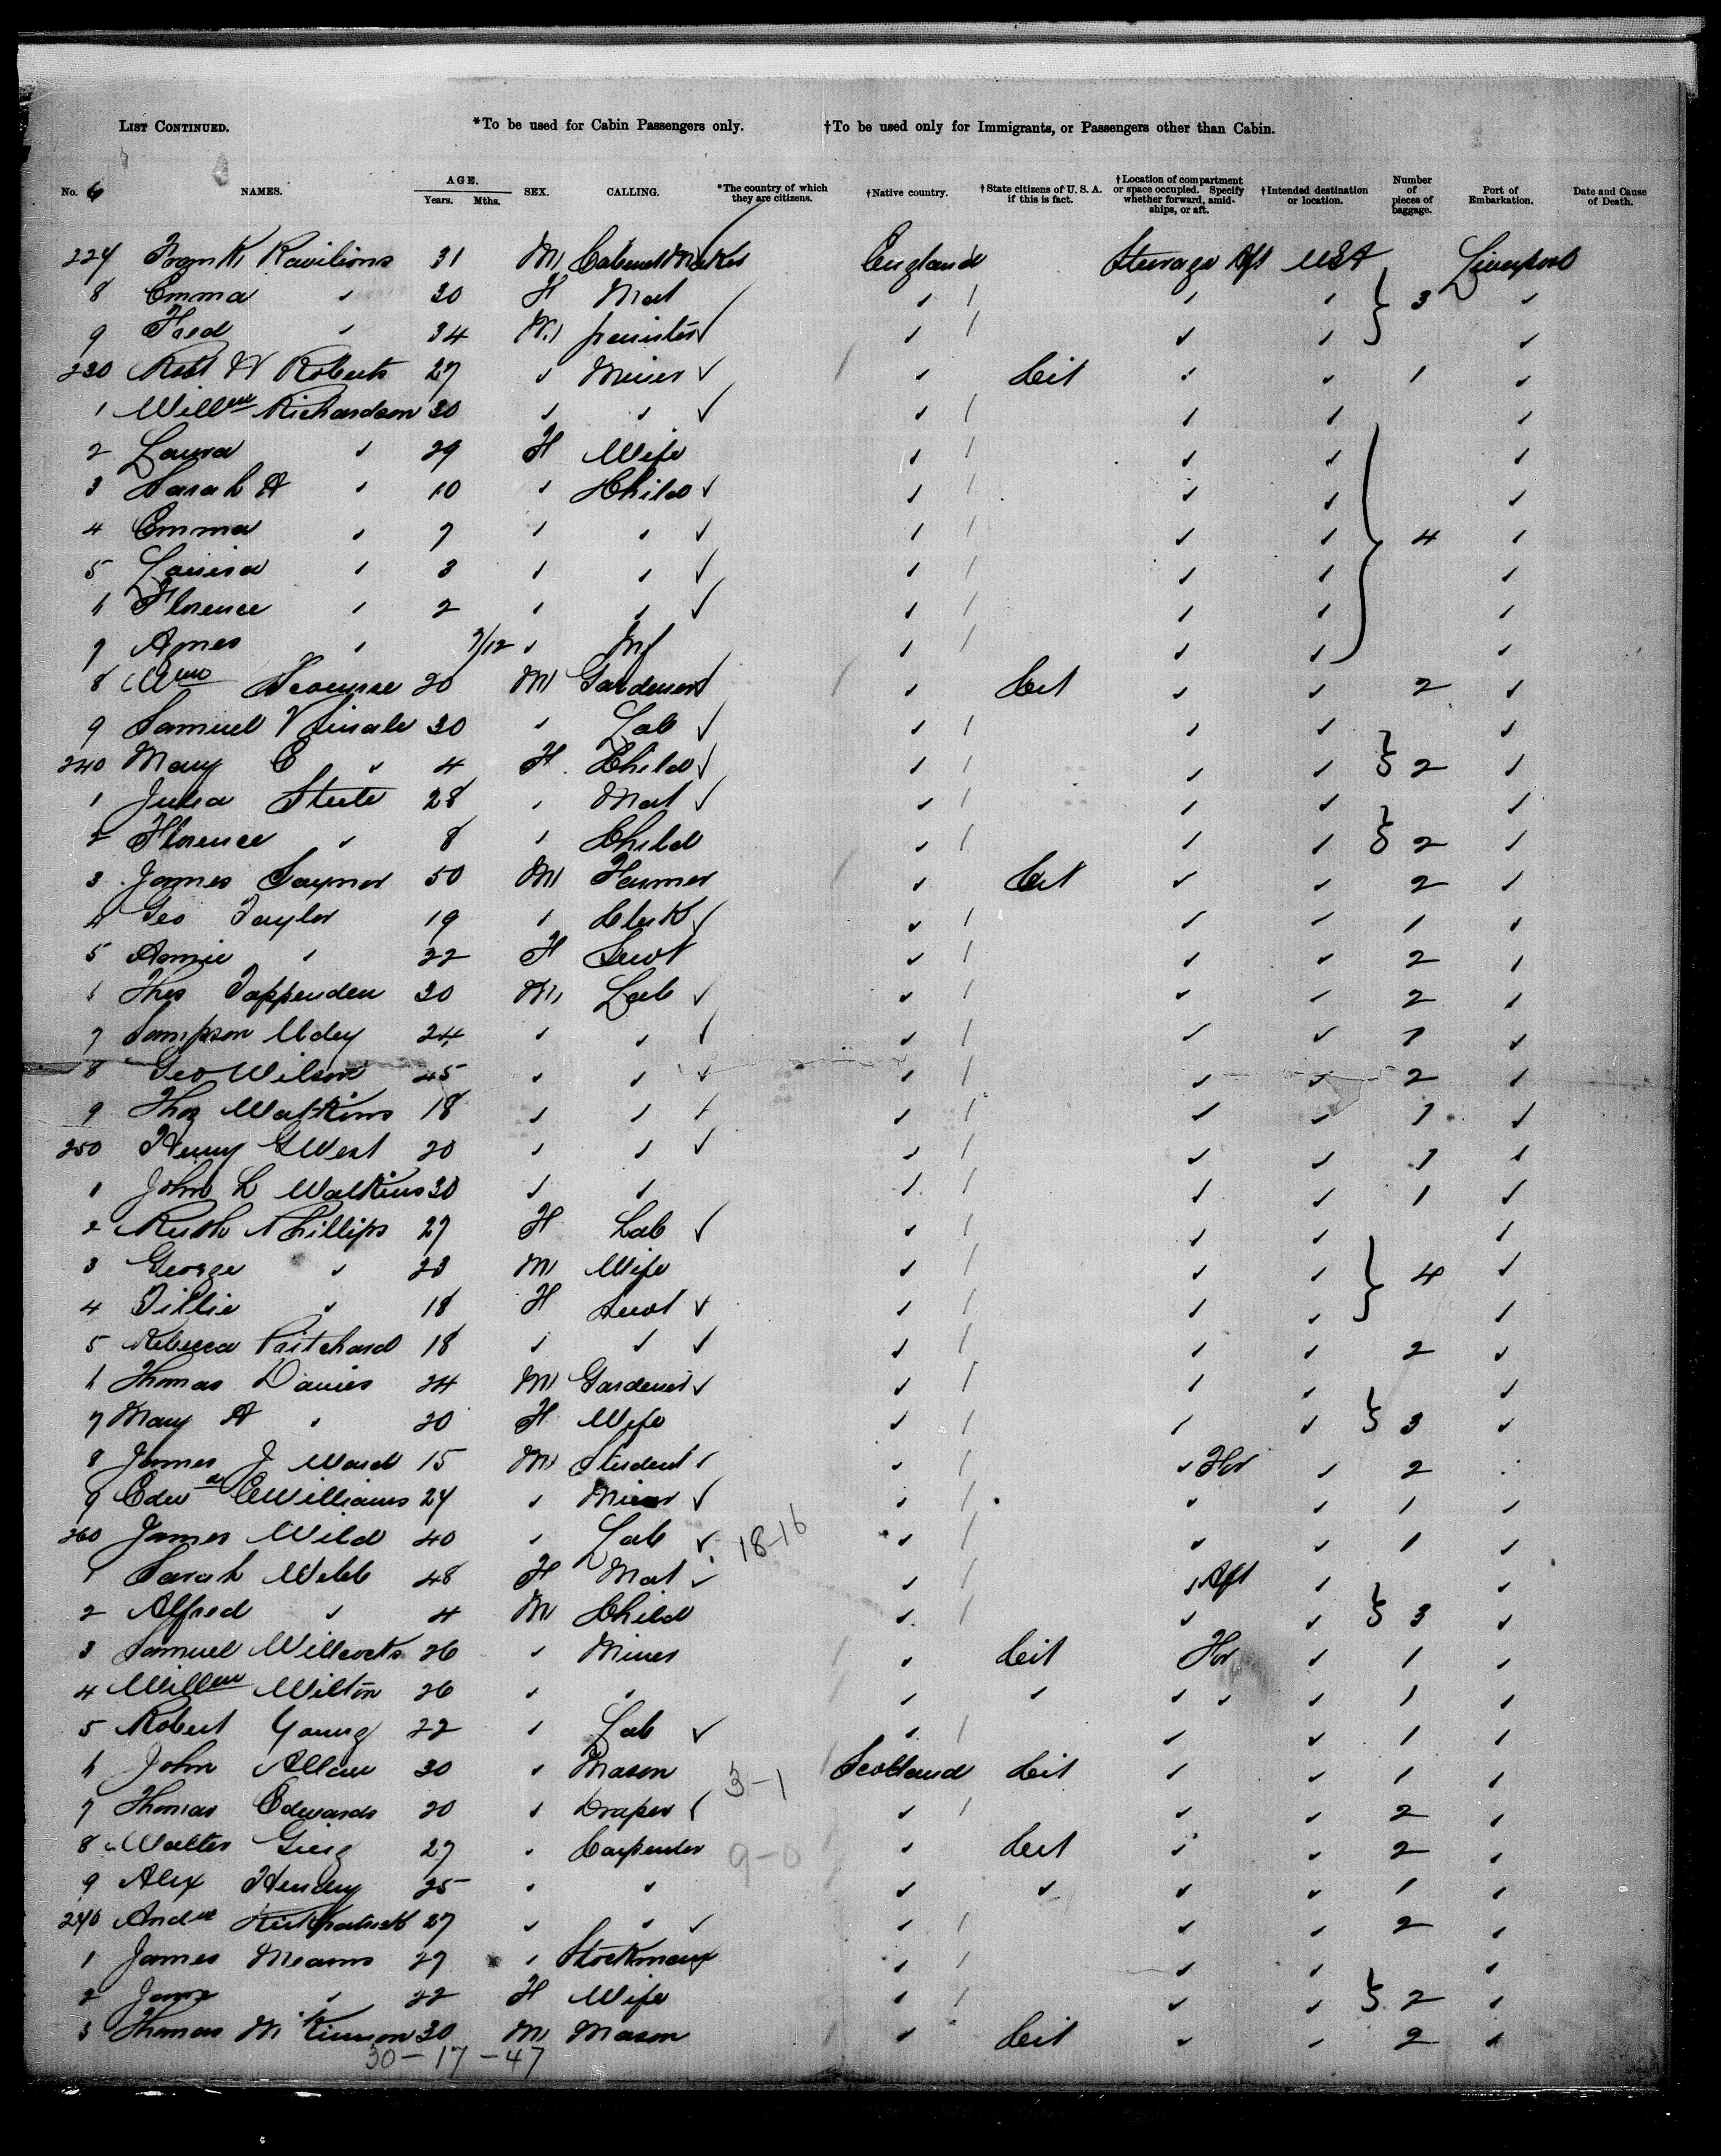 LIST CONTINUED. *To be used for Cabin Passengers only. †To be used only for Immigrants, or Passengers other than Cabin.
No. 6 NAMES. AGE. Years. Mths. SEX. CALLING. *The country of which they are citizens. †Native country. †State citizens of U. S. A. if this is fact. †Location of compartment or space occupied. Specify whether forward, amidships, or aft. †Intended destination or location. Number of pieces of baggage. Port of Embarkation. Date and Cause of Death.
227 Frank Ravilions 31 M Cabinet Maker England Steerage Aft USA Liverpool
8 Emma " 30 F Mat " " " 3 "
9 Fred " 34 M " " " "
230 Robt W Roberts 27 " Miner " Cit " " 1 "
1 Willm Richardson 30 " " " " " "
2 Laura " 29 F Wife " " " "
3 Sarah A " 10 " Child " " " "
4 Emma " 7 " " " " " 4 "
5 Louisa " 3 " " " " " "
6 Florence " 2 " " " " " "
7 Agnes " 7/12 " Inf " " " "
8 Wm 20 M Gardener " Cit " " 2 "
9 Samuel 30 " Lab " " " "
240 Mary E " 4 F Child " " " 2 "
1 Julia Steele 28 " Mat " " " "
2 Florence " 8 " Child " " " 2 "
3 James Saynor 50 M Farmer " Cit " " 2 "
4 Geo Taylor 19 " Clerk " " " 1 "
5 Annie " 22 F Servt " " " 2 "
6 Thos Tappenden 30 M Lab " " " 2 "
7 Sampson Udey 24 " " " " " 1 "
8 Geo Wilson 45 " " " " " 2 "
9 Thos Watkins 18 " " " " " 1 "
250 Henry G West 20 " " " " " 1 "
1 John L Watkins 30 " " " " " 1 "
2 Ruth Phillips 27 F Lab " " " "
3 George " 23 M Wife " " " 4 "
4 Tillie " 18 F Servt " " " "
5 Rebecca Pritchard 18 " " " " " 2 "
6 Thomas Davies 24 M Gardener " " " "
7 Mary A " 20 F Wife " " " 3 "
8 James J Ward 15 M Student " " For " 2 "
9 Edwd E Williams 24 " Miner " " " 1 "
260 James Wild 40 " Lab 18-16 " " " 1 "
1 Sarah Webb 48 F Mat " " Aft " "
2 Alfred " 4 M Child " " " 3 "
3 Samuel Willcocks 26 " Miner " Cit For " 1 "
4 Willm Wilton 26 " " " " " " " 1 "
5 Robert Young 22 " Lab " " " 1 "
6 John Allan 30 " Mason 3-1 Scotland Cit " " 1 "
7 Thomas Edwards 20 " Draper " " " 2 "
8 Walter Greig 27 " Carpenter 9-0 " Cit " " 2 "
9 Alex Hendry 25 " " " " " " 1 "
270 Andw Kirkpatrick 27 " " " " " 2 "
1 James Mearns 27 " Stockman " " " "
2 Jane " 22 F Wife " " " 2 "
3 Thomas McKinnon 30 M Mason " Cit " " 2 "
30-17-47